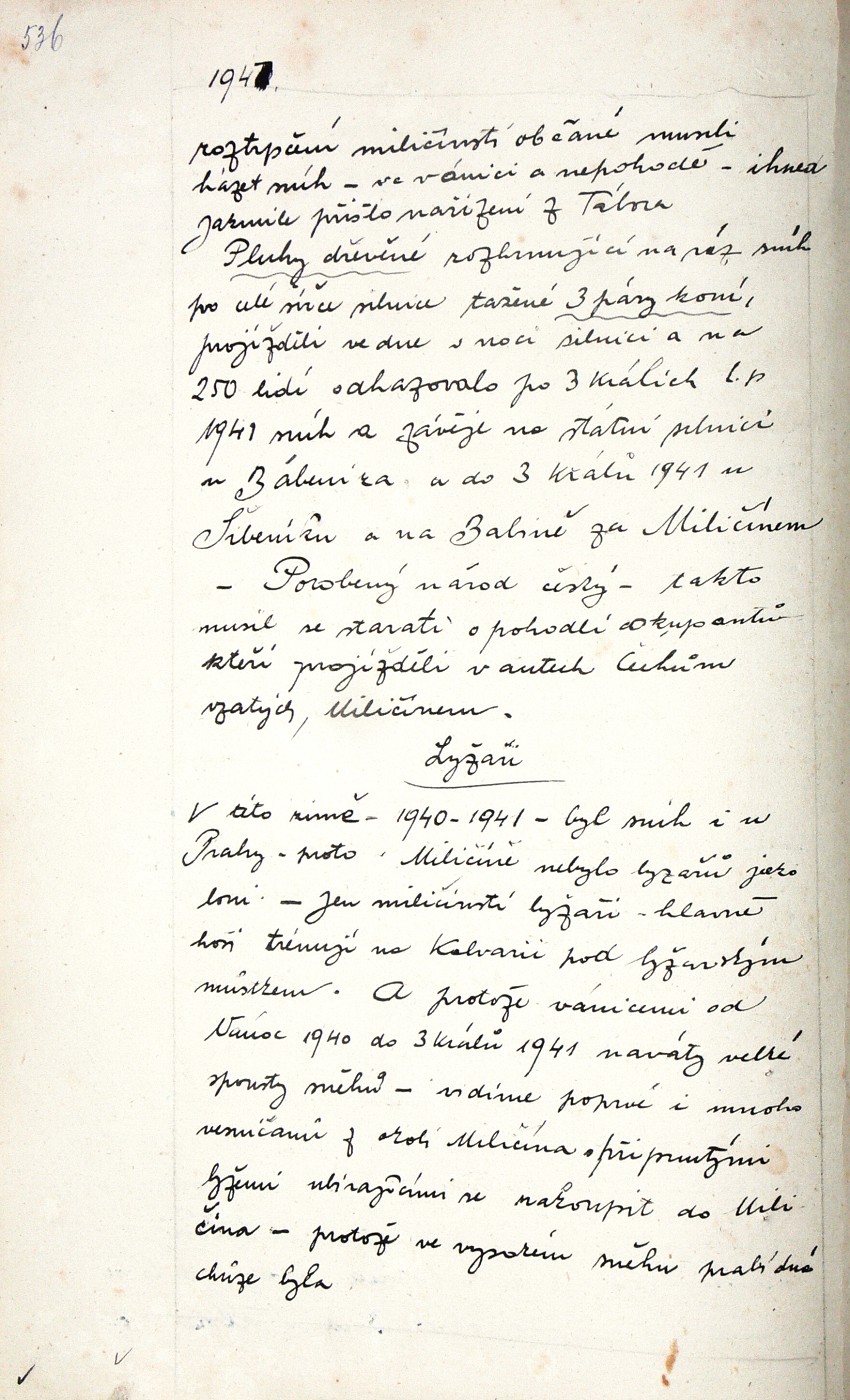 536
1941.
roztrpčení miličínstí občané museli
házet sníh – ve vánici a nepohodě – ihned
jakmile přišlo nařízení z Tábora
Pluhy dřevěné rozhrnující na ráz sníh
po celé šířce silnice tažené 3 páry koní,
projížděli ve dne v noci silnici a na
250 lidí odhazovalo po 3 Králích t. r.
1941 sníh a závěje na státní silnici
u a do 3 Králů 1941 u
Šibeníku a na Babině za Miličínem
– Porobený národ český – takto
musil se starati o pohodlí okupantů
kteří projížděli v autech Čechům
vzatých, Miličínem.
Lyžaři
V této zimě – 1940–1941 – byl sníh i u
Prahy – proto v Miličíně nebylo lyžařů jako
loni – Jen miličínstí lyžaři – hlavně
hoši trénují na Kalvarii pod lyžarským
můstkem. A protože vánicemi od
Vánoc 1940 do 3 Králů 1941 naváty velké
spousty sněhů – vidíme poprvé i mnoho
vesničanů z okolí Miličína s připnutými
lyžemi ubírajícími se nakoupit do Mili
čína – protože ve vysokém sněhu prabídná
chůze byla